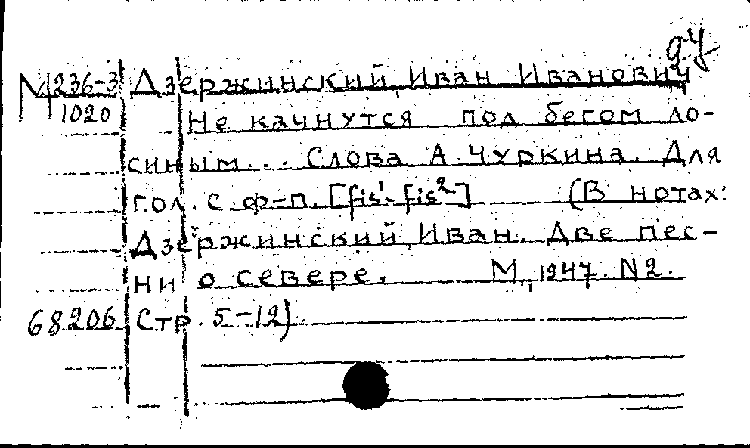 М 236-3 Дзержинский, Иван Иванович
1020 Не качнутся под бегом ло-
синым... Слова А. Чуркина. Для
гол. с ф-п. [fis¹-fis²] (В нотах:
Дзержинский, Иван. Две пес-
ни о севере. М., 1947. N2.
68206 Стр. 5-12)